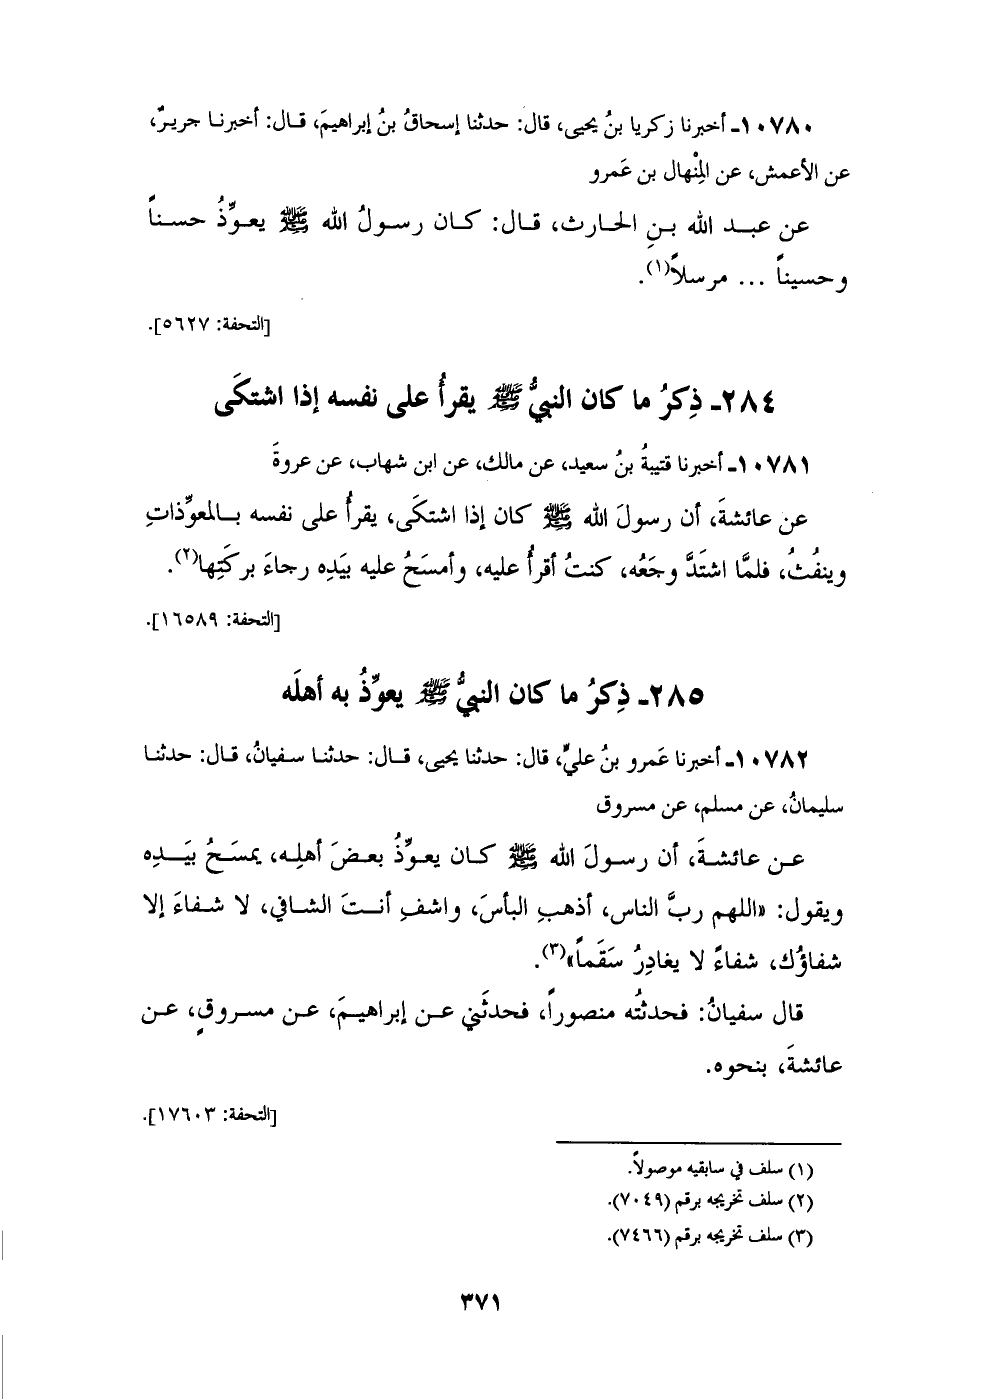 ١٠٧٨٠ـ أخبرنا زكريا بنُ يحيى، قال: حدثنا إسحاقُ بنُ إبراهيمَ، قـال: أخبرنـا جريرٌ،
عن الأعمش، عن المِنْهال بن عَمرو
عن عبـد الله بـنِ الحـارث، قـال: كـان رسـولُ الله ﷺ يعـوِّذُ حسـناً
وحسيناً ... مرسلاً(١).
[التحفة: ٥٦٢٧].
٢٨٤ـ ذِكرُ ما كان النبيُّ ﷺ يقرأُ على نفسه إذا اشتكَى
١٠٧٨١ـ أخبرنا قتيبةُ بنُ سعيد، عن مالك، عن ابن شهاب، عن عروةَ
عن عائشةَ، أن رسولَ الله ﷺ كان إذا اشتكَى، يقرأُ على نفسه بـالمعوِّذاتِ
وينفُثُ، فلمَّا اشتَدَّ وجَعُه، كنتُ أقرأُ عليه، وأمسَحُ عليه بيَدِه رجاءَ بركَتِها(٢).
[التحفة: ١٦٥٨٩].
٢٨٥ـ ذِكرُ ما كان النبيُّ ﷺ يعوِّذُ به أهلَه
١٠٧٨٢ـ أخبرنا عَمرو بنُ عليٍّ، قال: حدثنا يحيى، قـال: حدثنـا سـفيانُ، قـال: حدثنـا
سليمانُ، عن مسلم، عن مسروق
عـن عائشـةَ، أن رسـولَ الله ﷺ كـان يعـوِّذُ بعـضَ أهلِـه، يمسَـحُ بيَـدِه
ويقول: «اللهم ربَّ الناس، أذهبِ البأسَ، واشفِ أنـتَ الشافي، لا شـفاءَ إلا
شفاؤُك، شفاءً لا يغادِرُ سَقَماً»(٣).
قال سفيانُ: فحدثتُه منصوراً، فحدثَني عـن إبراهيـمَ، عـن مسـروقٍ، عـن
عائشةَ، بنحوه.
[التحفة: ١٧٦٠٣].
(١) سلف في سابقيه موصولاً.
(٢) سلف تخريجه برقم (٧٠٤٩).
(٣) سلف تخريجه برقم (٧٤٦٦).
٣٧١